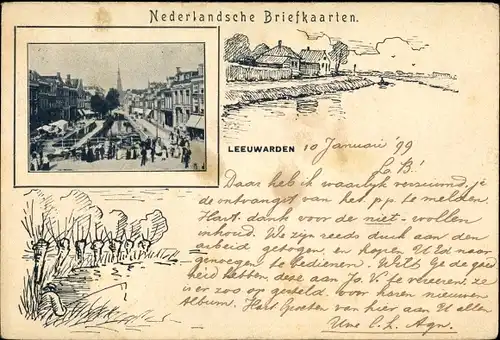 Nederlandsche Briefkaarten.
LEEUWARDEN 10 Januari '99
L.B!
Daar heb ik waarlijk verzuimd, je
de ontvangst van het p.p. te melden.
Hart. dank voor de niet-wollen
inhoud. We zijn reeds druk aan den
arbeid getogen, en hopen U Ed naar
genoegen te bedienen. Wilt ge de goed
heid hebben deze aan Jo. V. te vereeren, ze
is er zoo op gesteld voor haren nieuwen
Album. Hart. Groeten van hier aan U allen
Uwe C. L. Agn.